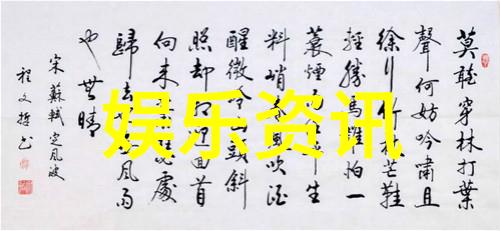 莫聽穿林打葉
聲何妨吟嘯且
徐行竹杖芒鞋
輕勝馬誰怕一
蓑煙平生
料峭風吹酒
醒微冷山頭斜
照却相迎回首
向来處
歸去也風雨
也無晴
宋蘇軾定風波
程文书
娱乐资讯